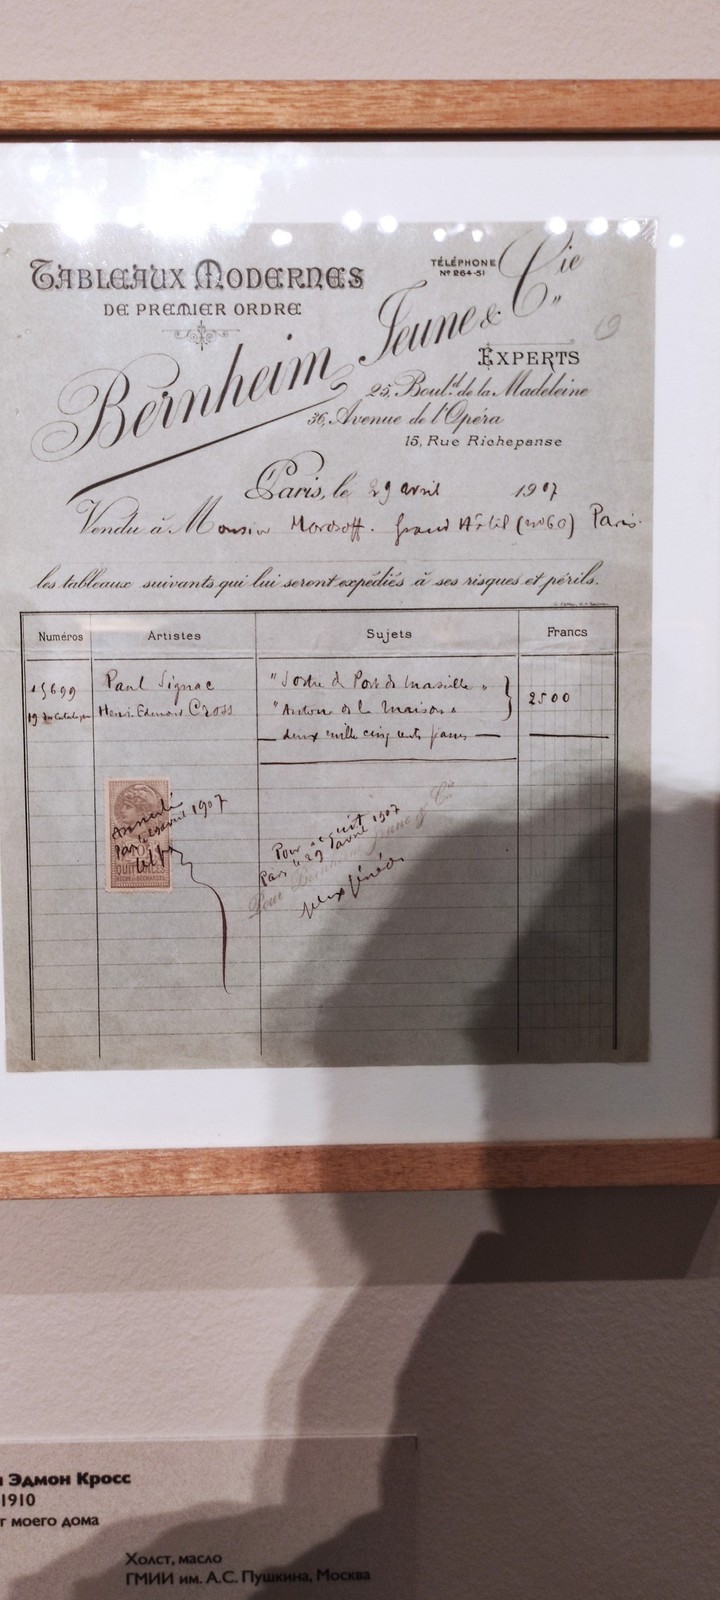 TABLEAUX MODERNES
DE PREMIER ORDRE
TÉLÉPHONE
No 264-51
Bernheim Jeune & Cie
EXPERTS
25, Boul.d de la Madeleine
36, Avenue de l'Opéra
15, Rue Richepanse
Paris, le 29 avril 1907
Vendu à Monsieur Morosoff. Grand Hôtel Paris
les tableaux suivants qui lui seront expédiés à ses risques et périls.
Numéros Artistes Sujets Francs
15699 Paul Signac "Sortie du Port de Marseille" 2500
19 du Catalogue Henri Edmond Cross "Autour de la Maison"
deux mille cinq cents francs
Paris 29 avril 1907
QUITTANCES
Pour acquit
Paris 29 avril 1907
Pour Bernheim Jeune & Cie
Эдмон Кросс
1910
г моего дома
Холст, масло
ГМИИ им. А.С. Пушкина, Москва